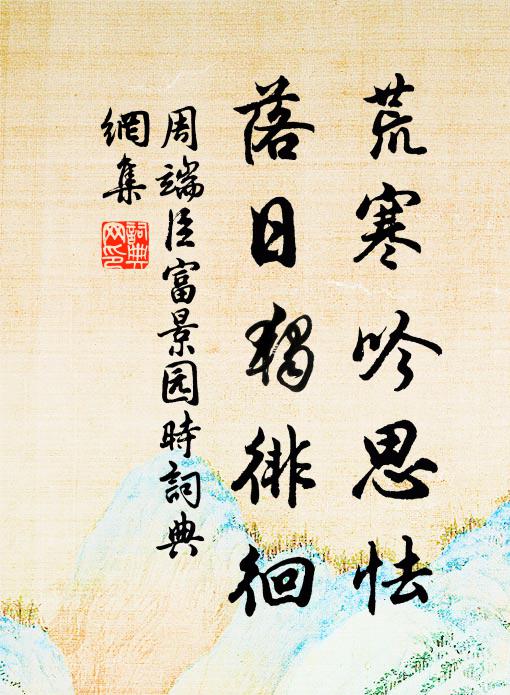 荒寒吟思怯
落日独徘徊
周端臣富景园時詞典
網集
詞典
网印